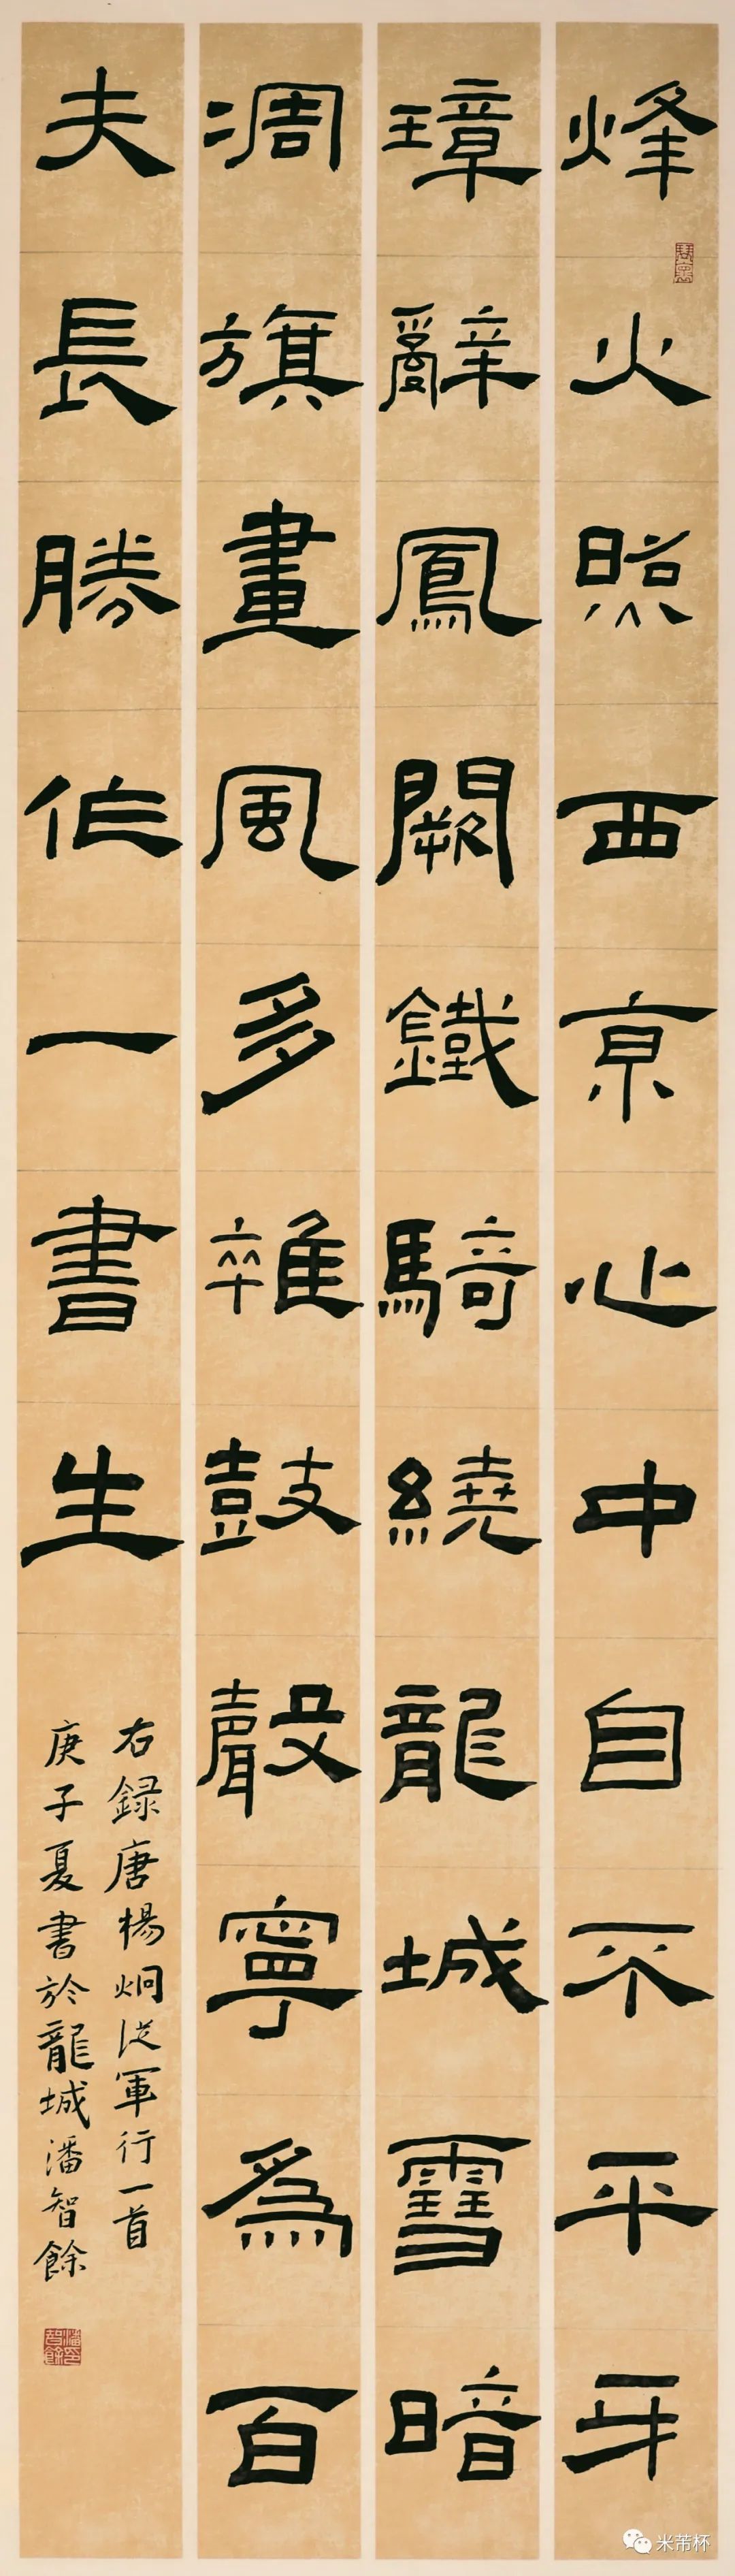 烽火照西京心中自不平牙
璋辭鳳闕鐵騎繞龍城雪暗
凋旗畫風多雜鼓聲寧為百
夫長勝作一書生
右録唐楊炯從軍行一首
庚子夏書於龍城潘智餘
米芾杯